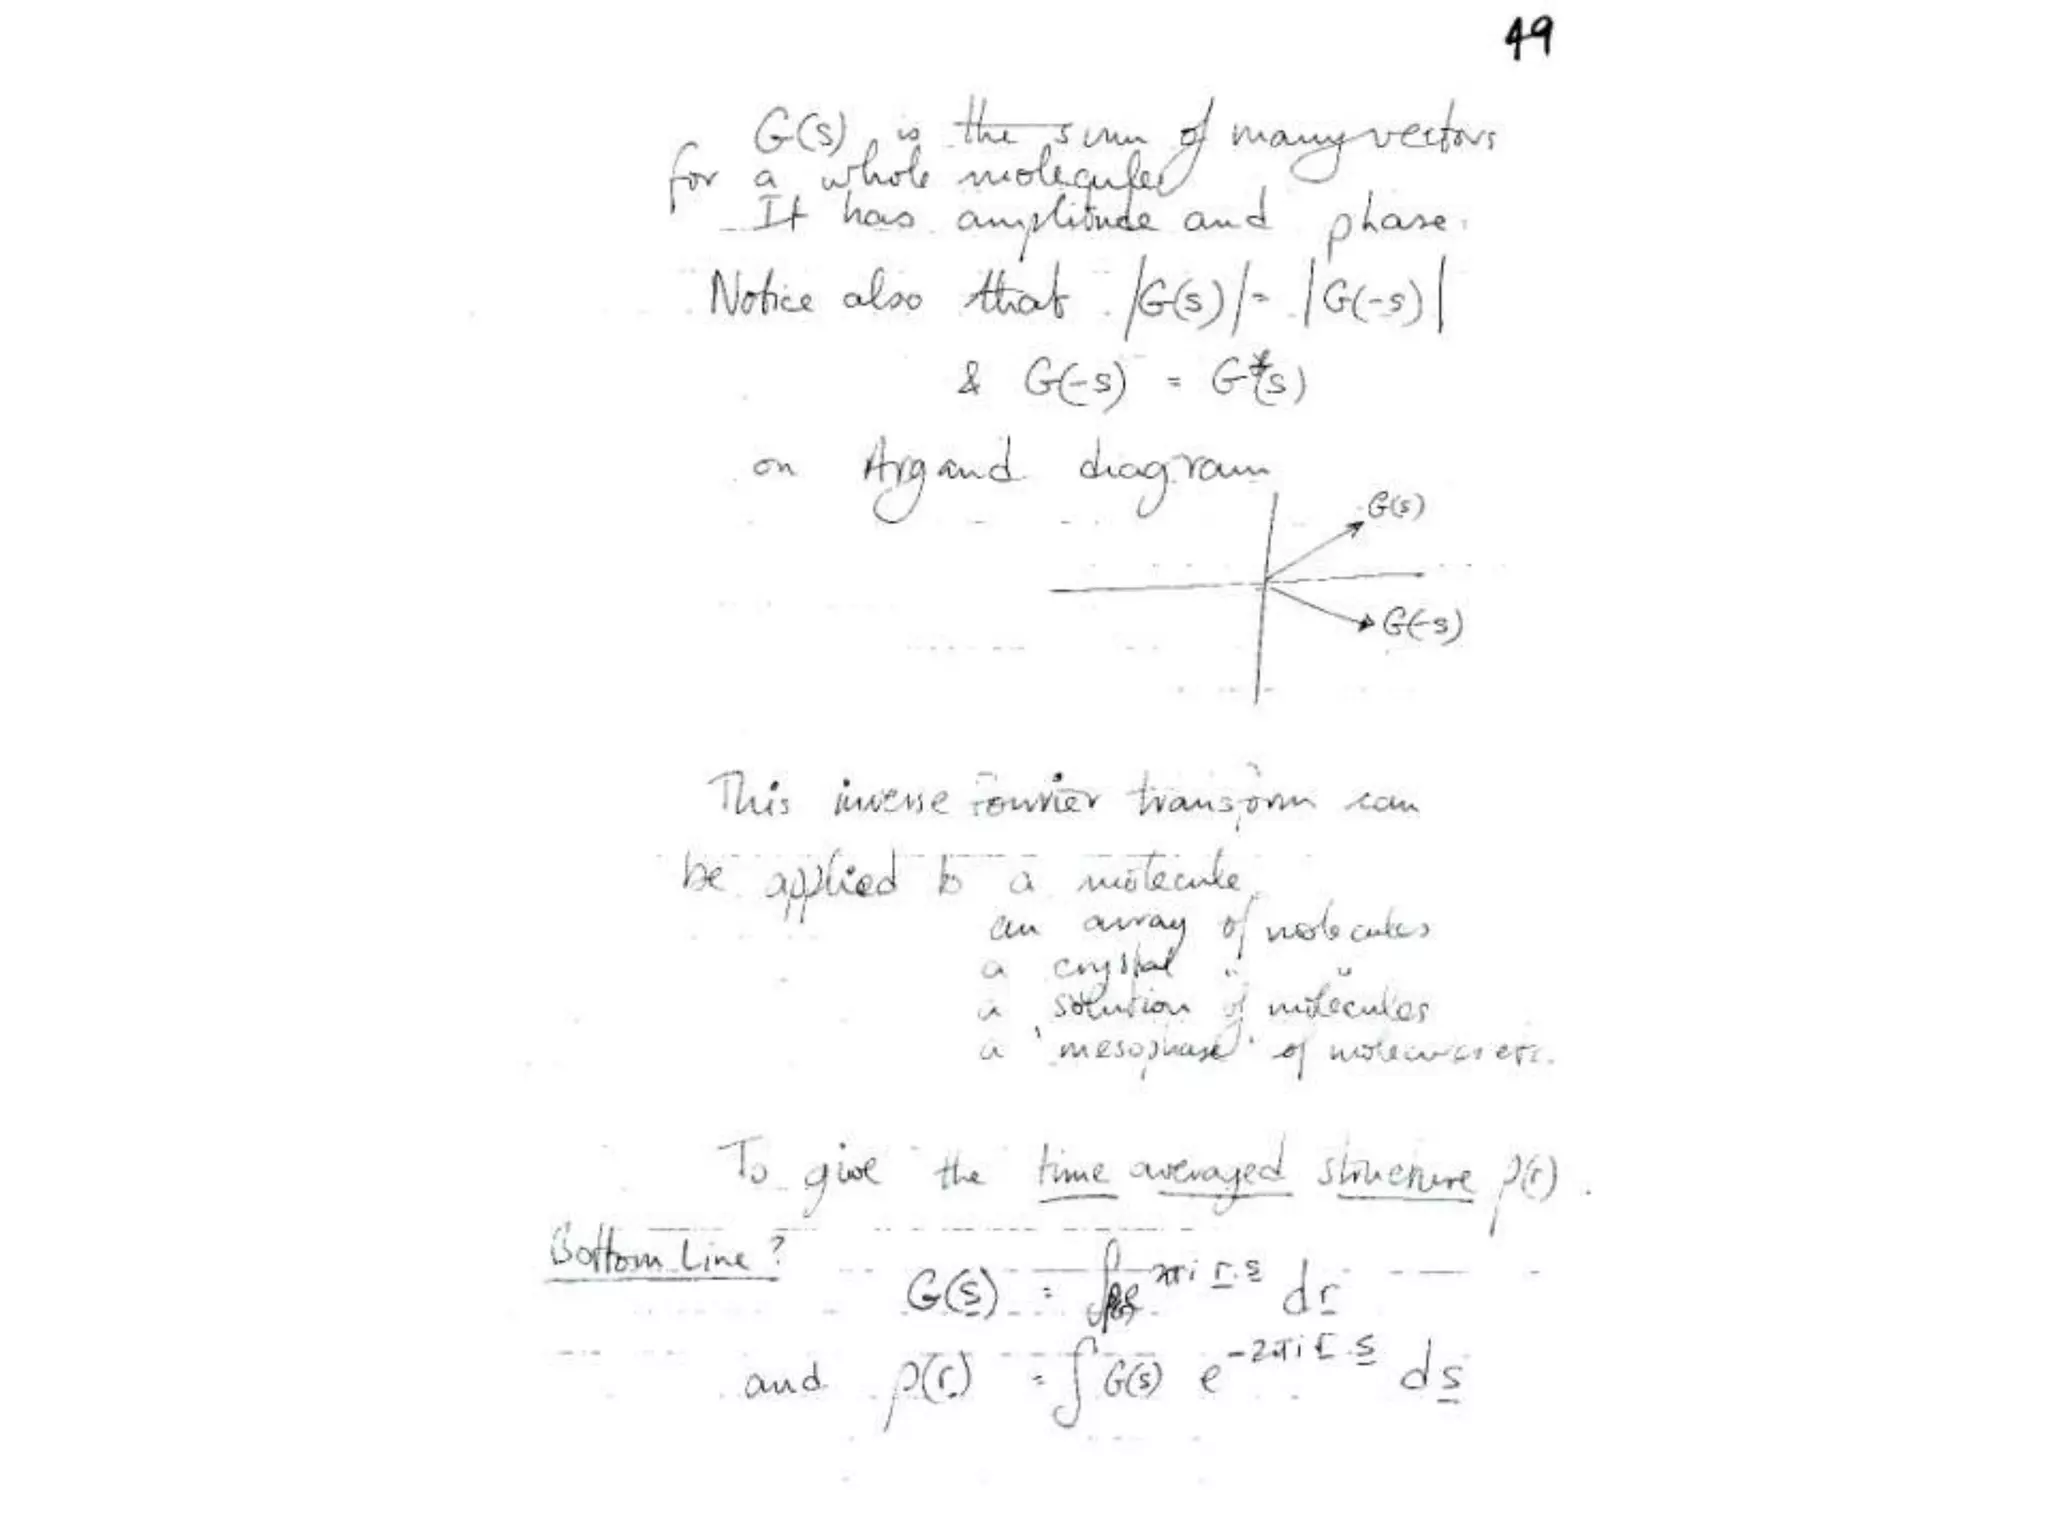 49
G(s) is the sum of many vectors
for a whole molecule
It has amplitude and phase.
Notice also that |G(s)| = |G(-s)|
& G(-s) = G*(s)
on Argand diagram
G(s)
G(-s)
This inverse Fourier transform can
be applied to a molecule,
an array of molecules
a crystal " "
a solution of molecules
a 'mesophase' of molecules etc.
To give the time averaged structure ρ(r).
Bottom Line?
G(s) = ∫ 2πi r.s dr
and ρ(r) = ∫ G(s) e^-2πi r.s ds